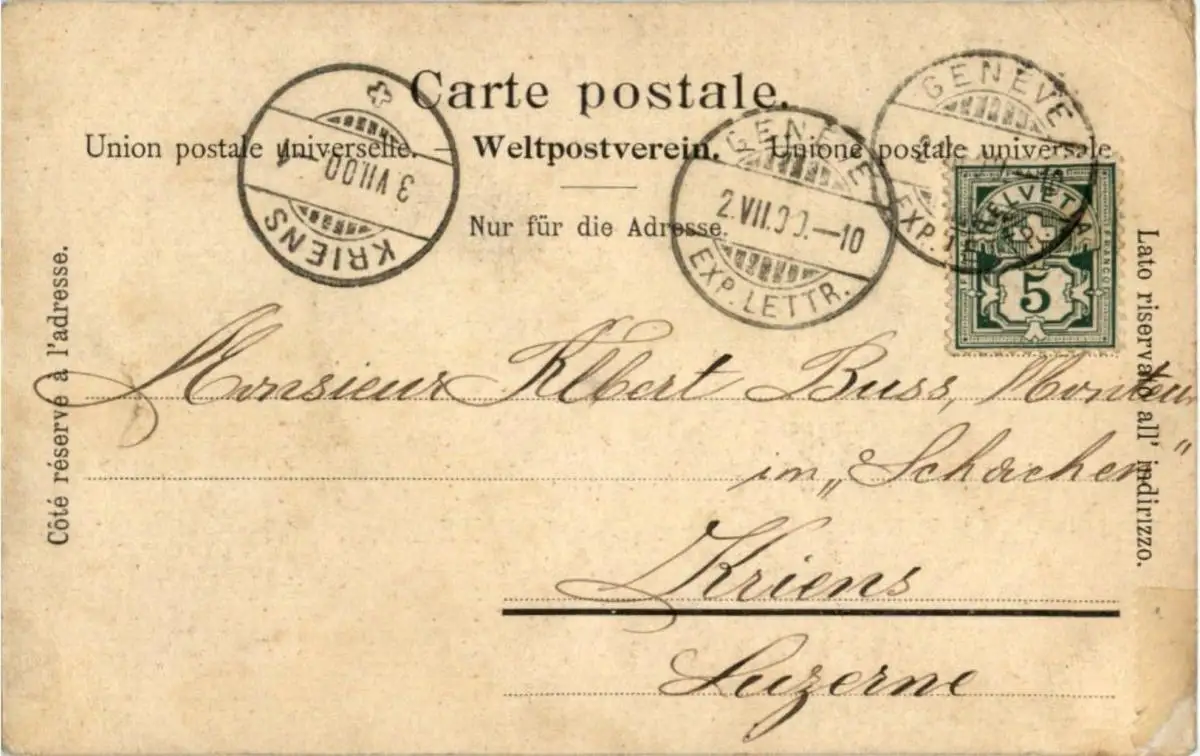 Carte postale.
Union postale universelle. — Weltpostverein. — Unione postale universale
Nur für die Adresse.
Côté réservé à l'adresse.
Lato riservato all' indirizzo.
KRIENS
3 VII.00–1
GENÈVE
2.VII.00.–10
EXP. LETTR.
GENÈVE
EXP. LETTR.
HELVETIA
FRANCO
5
Monsieur Albert Buss, Monteur
im „Schachen"
Kriens
Luzerne